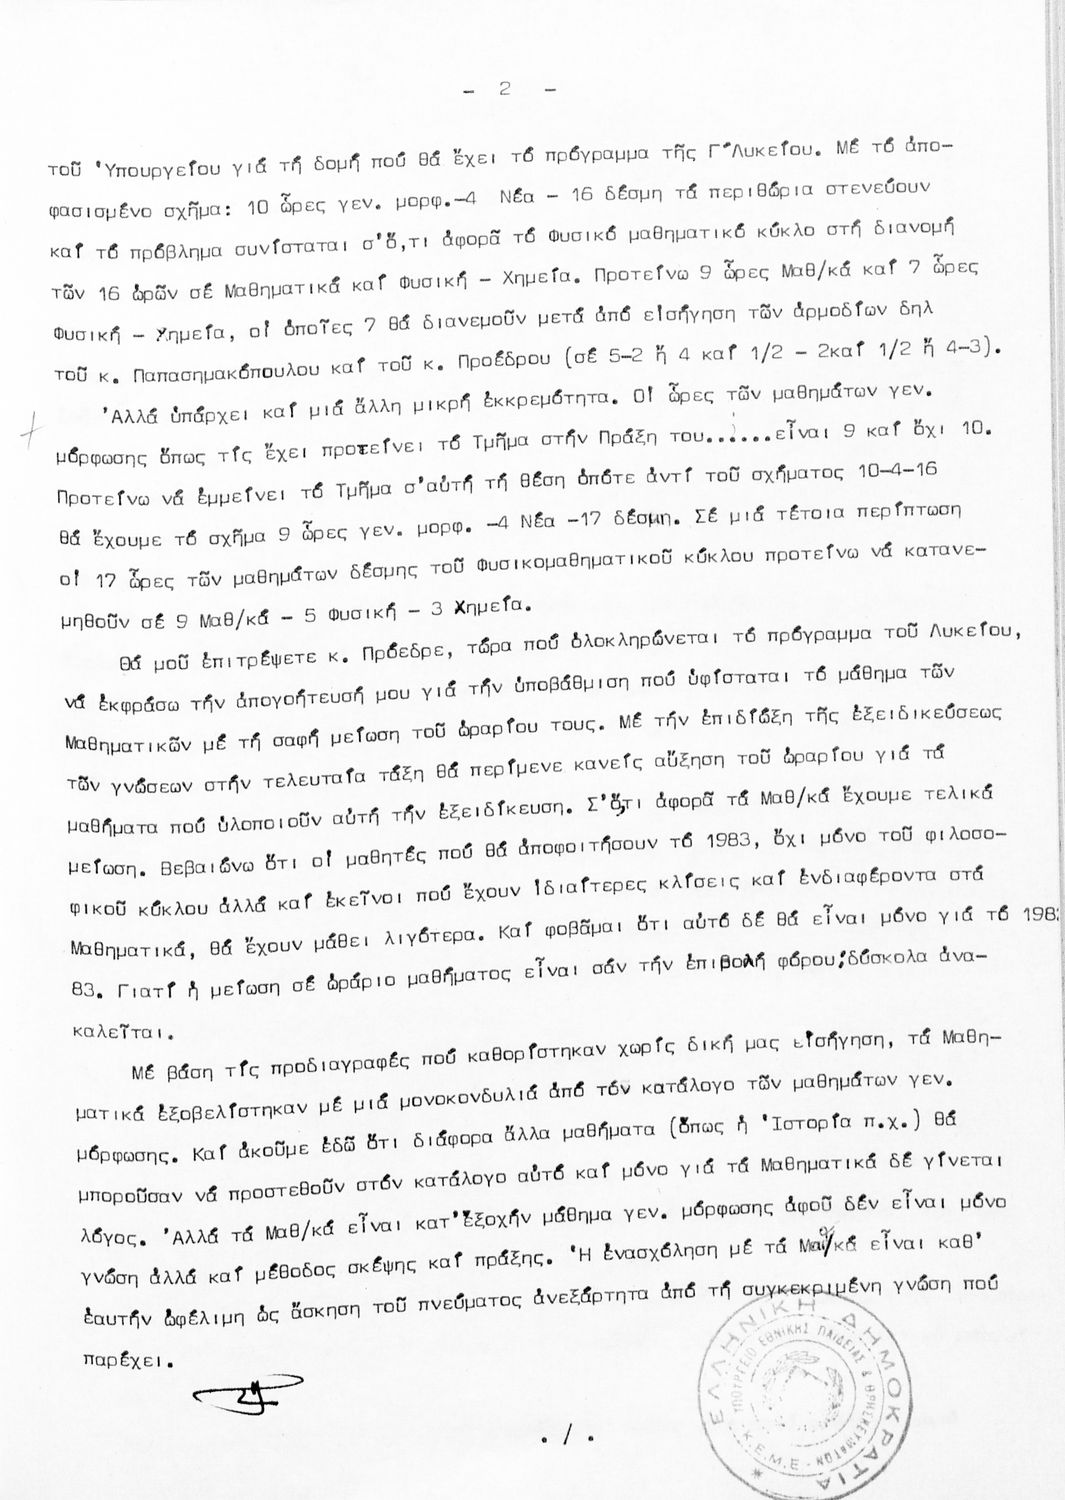 - 2 -
τοῦ Ὑπουργείου γιά τή δομή πού θά ἔχει τό πρόγραμμα τῆς Γ΄Λυκείου. Μέ τό ἀπο-
φασισμένο σχῆμα: 10 ὧρες γεν. μορφ.-4 Νέα - 16 δέσμη τά περιθώρια στενεύουν
καί τό πρόβλημα συνίσταται σ'ὅ,τι ἀφορᾶ τό Φυσικό μαθηματικό κύκλο στή διανομή
τῶν 16 ὡρῶν σέ Μαθηματικά καί Φυσική - Χημεία. Προτείνω 9 ὧρες Μαθ/κά καί 7 ὧρες
Φυσική - Χημεία, οἱ ὁποῖες 7 θά διανεμοῦν μετά ἀπό εἰσήγηση τῶν ἁρμοδίων δηλ
τοῦ κ. Παπασημακόπουλου καί τοῦ κ. Προέδρου (σέ 5-2 ἤ 4 καί 1/2 - 2καί 1/2 ἤ 4-3).
Ἀλλά ὑπάρχει καί μιά ἄλλη μικρή ἐκκρεμότητα. Οἱ ὧρες τῶν μαθημάτων γεν.
μόρφωσης ὅπως τίς ἔχει προτείνει τό Τμῆμα στήν Πράξη του......εἶναι 9 καί ὄχι 10.
Προτείνω νά ἐμμείνει τό Τμῆμα σ'αὐτή τή θέση ὁπότε ἀντί τοῦ σχήματος 10-4-16
θά ἔχουμε τό σχῆμα 9 ὧρες γεν. μορφ. -4 Νέα -17 δέσμη. Σέ μιά τέτοια περίπτωση
οἱ 17 ὧρες τῶν μαθημάτων δέσμης τοῦ Φυσικομαθηματικοῦ κύκλου προτείνω νά κατανε-
μηθοῦν σέ 9 Μαθ/κά - 5 Φυσική - 3 Χημεία.
Θά μοῦ ἐπιτρέψετε κ. Πρόεδρε, τώρα πού ὁλοκληρώνεται τό πρόγραμμα τοῦ Λυκείου,
νά ἐκφράσω τήν ἀπογοήτευσή μου γιά τήν ὑποβάθμιση πού ὑφίσταται τό μάθημα τῶν
Μαθηματικῶν μέ τή σαφή μείωση τοῦ ὡραρίου τους. Μέ τήν ἐπιδίωξη τῆς ἐξειδικεύσεως
τῶν γνώσεων στήν τελευταία τάξη θά περίμενε κανείς αὔξηση τοῦ ὡραρίου γιά τά
μαθήματα πού ὑλοποιοῦν αὐτή τήν ἐξειδίκευση. Σ'ὅ,τι ἀφορᾶ τά Μαθ/κά ἔχουμε τελικά
μείωση. Βεβαιώνω ὅτι οἱ μαθητές πού θά ἀποφοιτήσουν τό 1983, ὄχι μόνο τοῦ φιλοσο-
φικοῦ κύκλου ἀλλά καί ἐκεῖνοι πού ἔχουν ἰδιαίτερες κλίσεις καί ἐνδιαφέροντα στά
Μαθηματικά, θά ἔχουν μάθει λιγότερα. Καί φοβᾶμαι ὅτι αὐτό δέ θά εἶναι μόνο γιά τό 1982
83. Γιατί ἡ μείωση σέ ὡράριο μαθήματος εἶναι σάν τήν ἐπιβολή φόρου: δύσκολα ἀνα-
καλεῖται.
Μέ βάση τίς προδιαγραφές πού καθορίστηκαν χωρίς δική μας εἰσήγηση, τά Μαθη-
ματικά ἐξοβελίστηκαν μέ μιά μονοκονδυλιά ἀπό τόν κατάλογο τῶν μαθημάτων γεν.
μόρφωσης. Καί ἀκοῦμε ἐδῶ ὅτι διάφορα ἄλλα μαθήματα (ὅπως ἡ Ἱστορία π.χ.) θά
μποροῦσαν νά προστεθοῦν στόν κατάλογο αὐτό καί μόνο γιά τά Μαθηματικά δέ γίνεται
λόγος. Ἀλλά τά Μαθ/κά εἶναι κατ'ἐξοχήν μάθημα γεν. μόρφωσης ἀφοῦ δέν εἶναι μόνο
γνώση ἀλλά καί μέθοδος σκέψης καί πράξης. Ἡ ἐνασχόληση μέ τά Μαθ/κά εἶναι καθ'
ἑαυτήν ὠφέλιμη ὡς ἄσκηση τοῦ πνεύματος ἀνεξάρτητα ἀπό τή συγκεκριμένη γνώση πού
παρέχει.
./.
ΕΛΛΗΝΙΚΗ ΔΗΜΟΚΡΑΤΙΑ
ΥΠΟΥΡΓΕΙΟ ΕΘΝΙΚΗΣ ΠΑΙΔΕΙΑΣ & ΘΡΗΣΚΕΥΜΑΤΩΝ
Κ.Ε.Μ.Ε